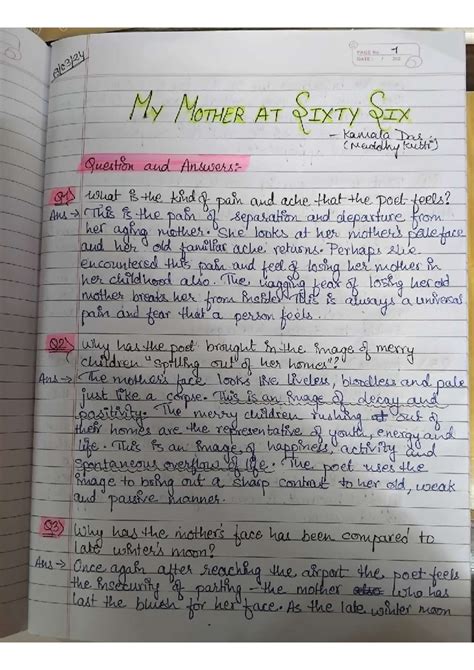 PAGE No. 1
DATE: / /
My Mother at Sixty Six
- Kamala Das
Question and Answers:-
Q1) What is the kind of pain and ache that the poet feels?
Ans → This is the pain of separation and departure from
her aging mother. She looks at her mother's pale face
and her old familiar ache returns. Perhaps she
encountered this pain and feel of losing her mother in
her childhood also. The nagging fear of losing her old
mother breaks her from inside. This is always a universal
pain and fear that a person feels.
Q2) Why has the poet brought in the image of merry
children "spilling out of her homes"?
Ans → The mother's face looks like liveless, bloodless and pale
just like a corpse. This is an image of decay and
positivity. The merry children rushing out of
their homes are the representative of youth, energy and
life. This is an image of happiness, activity and
spontaneous overflow of life. The poet uses the
image to bring out a sharp contrast to her old, weak
and passive manner.
Q3) Why has the mother's face has been compared to
late winter's moon?
Ans → Once again after reaching the airport the poet feels
the insecurity of parting - the mother who has
last the blush for her face. As the late winter moon